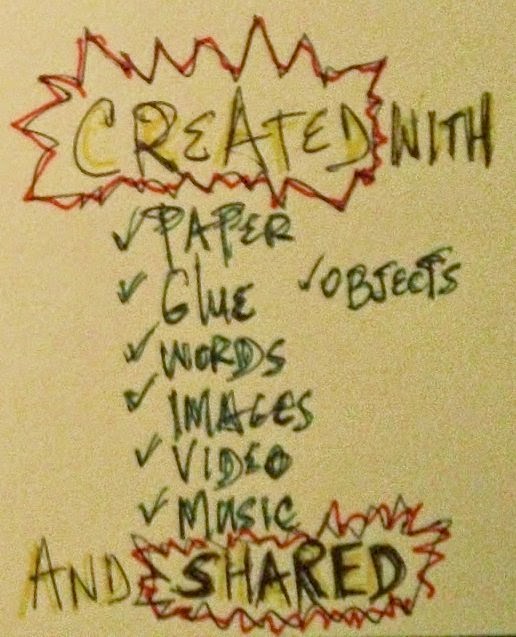 CREATED WITH
✓ PAPER
✓ GLUE ✓ OBJECTS
✓ WORDS
✓ IMAGES
✓ VIDEO
✓ MUSIC
AND SHARED